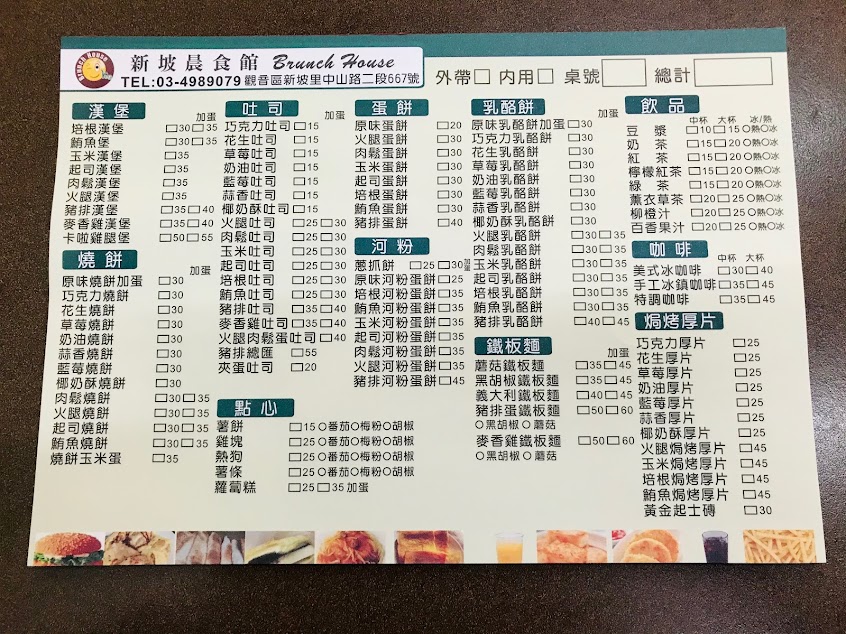 Brunch House
新坡晨食館 Brunch House
TEL:03-4989079 觀音區新坡里中山路二段667號
外帶□ 內用□ 桌號 總計
漢堡
加蛋
培根漢堡 □30□35
鮪魚堡 □30□35
玉米漢堡 □35
起司漢堡 □35
肉鬆漢堡 □35
火腿漢堡 □35
豬排漢堡 □35□40
麥香雞漢堡 □35□40
卡啦雞腿堡 □50□55
燒餅
加蛋
原味燒餅加蛋 □30
巧克力燒餅 □30
花生燒餅 □30
草莓燒餅 □30
奶油燒餅 □30
蒜香燒餅 □30
藍莓燒餅 □30
椰奶酥燒餅 □30
肉鬆燒餅 □30□35
火腿燒餅 □30□35
起司燒餅 □30□35
鮪魚燒餅 □30□35
燒餅玉米蛋 □35
吐司
加蛋
巧克力吐司 □15
花生吐司 □15
草莓吐司 □15
奶油吐司 □15
藍莓吐司 □15
蒜香吐司 □15
椰奶酥吐司 □15
火腿吐司 □25□30
肉鬆吐司 □25□30
玉米吐司 □25□30
起司吐司 □25□30
培根吐司 □25□30
鮪魚吐司 □25□30
豬排吐司 □35□40
麥香雞吐司 □35□40
火腿肉鬆蛋吐司 □40
豬排總匯 □55
夾蛋吐司 □20
點心
薯餅 □15○番茄○梅粉○胡椒
雞塊 □25○番茄○梅粉○胡椒
熱狗 □25○番茄○梅粉○胡椒
薯條 □25○番茄○梅粉○胡椒
蘿蔔糕 □25□35加蛋
蛋餅
原味蛋餅 □20
火腿蛋餅 □30
肉鬆蛋餅 □30
玉米蛋餅 □30
起司蛋餅 □30
培根蛋餅 □30
鮪魚蛋餅 □30
豬排蛋餅 □40
河粉
蔥抓餅 □25□30加蛋
原味河粉蛋餅 □25
培根河粉蛋餅 □35
鮪魚河粉蛋餅 □35
玉米河粉蛋餅 □35
起司河粉蛋餅 □35
肉鬆河粉蛋餅 □35
火腿河粉蛋餅 □35
豬排河粉蛋餅 □45
乳酪餅
加蛋
原味乳酪餅加蛋 □30
巧克力乳酪餅 □30
花生乳酪餅 □30
草莓乳酪餅 □30
奶油乳酪餅 □30
藍莓乳酪餅 □30
蒜香乳酪餅 □30
椰奶酥乳酪餅 □30
火腿乳酪餅 □30□35
肉鬆乳酪餅 □30□35
玉米乳酪餅 □30□35
起司乳酪餅 □30□35
培根乳酪餅 □30□35
鮪魚乳酪餅 □30□35
豬排乳酪餅 □40□45
鐵板麵
加蛋
蘑菇鐵板麵 □35□45
黑胡椒鐵板麵 □35□45
義大利鐵板麵 □40□45
豬排蛋鐵板麵 □50□60
○黑胡椒○蘑菇
麥香雞鐵板麵 □50□60
○黑胡椒○蘑菇
飲品
中杯 大杯 冰/熱
豆漿 □10□15○熱○冰
奶茶 □15□20○熱○冰
紅茶 □15□20○熱○冰
檸檬紅茶 □15□20○熱○冰
綠茶 □15□20○熱○冰
薰衣草茶 □20□25○熱○冰
柳橙汁 □20□25○熱○冰
百香果汁 □20□25○熱○冰
咖啡
中杯 大杯
美式冰咖啡 □30□40
手工冰鎮咖啡 □35□45
特調咖啡 □35□45
焗烤厚片
巧克力厚片 □25
花生厚片 □25
草莓厚片 □25
奶油厚片 □25
藍莓厚片 □25
蒜香厚片 □25
椰奶酥厚片 □25
火腿焗烤厚片 □45
玉米焗烤厚片 □45
培根焗烤厚片 □45
鮪魚焗烤厚片 □45
黃金起士磚 □30